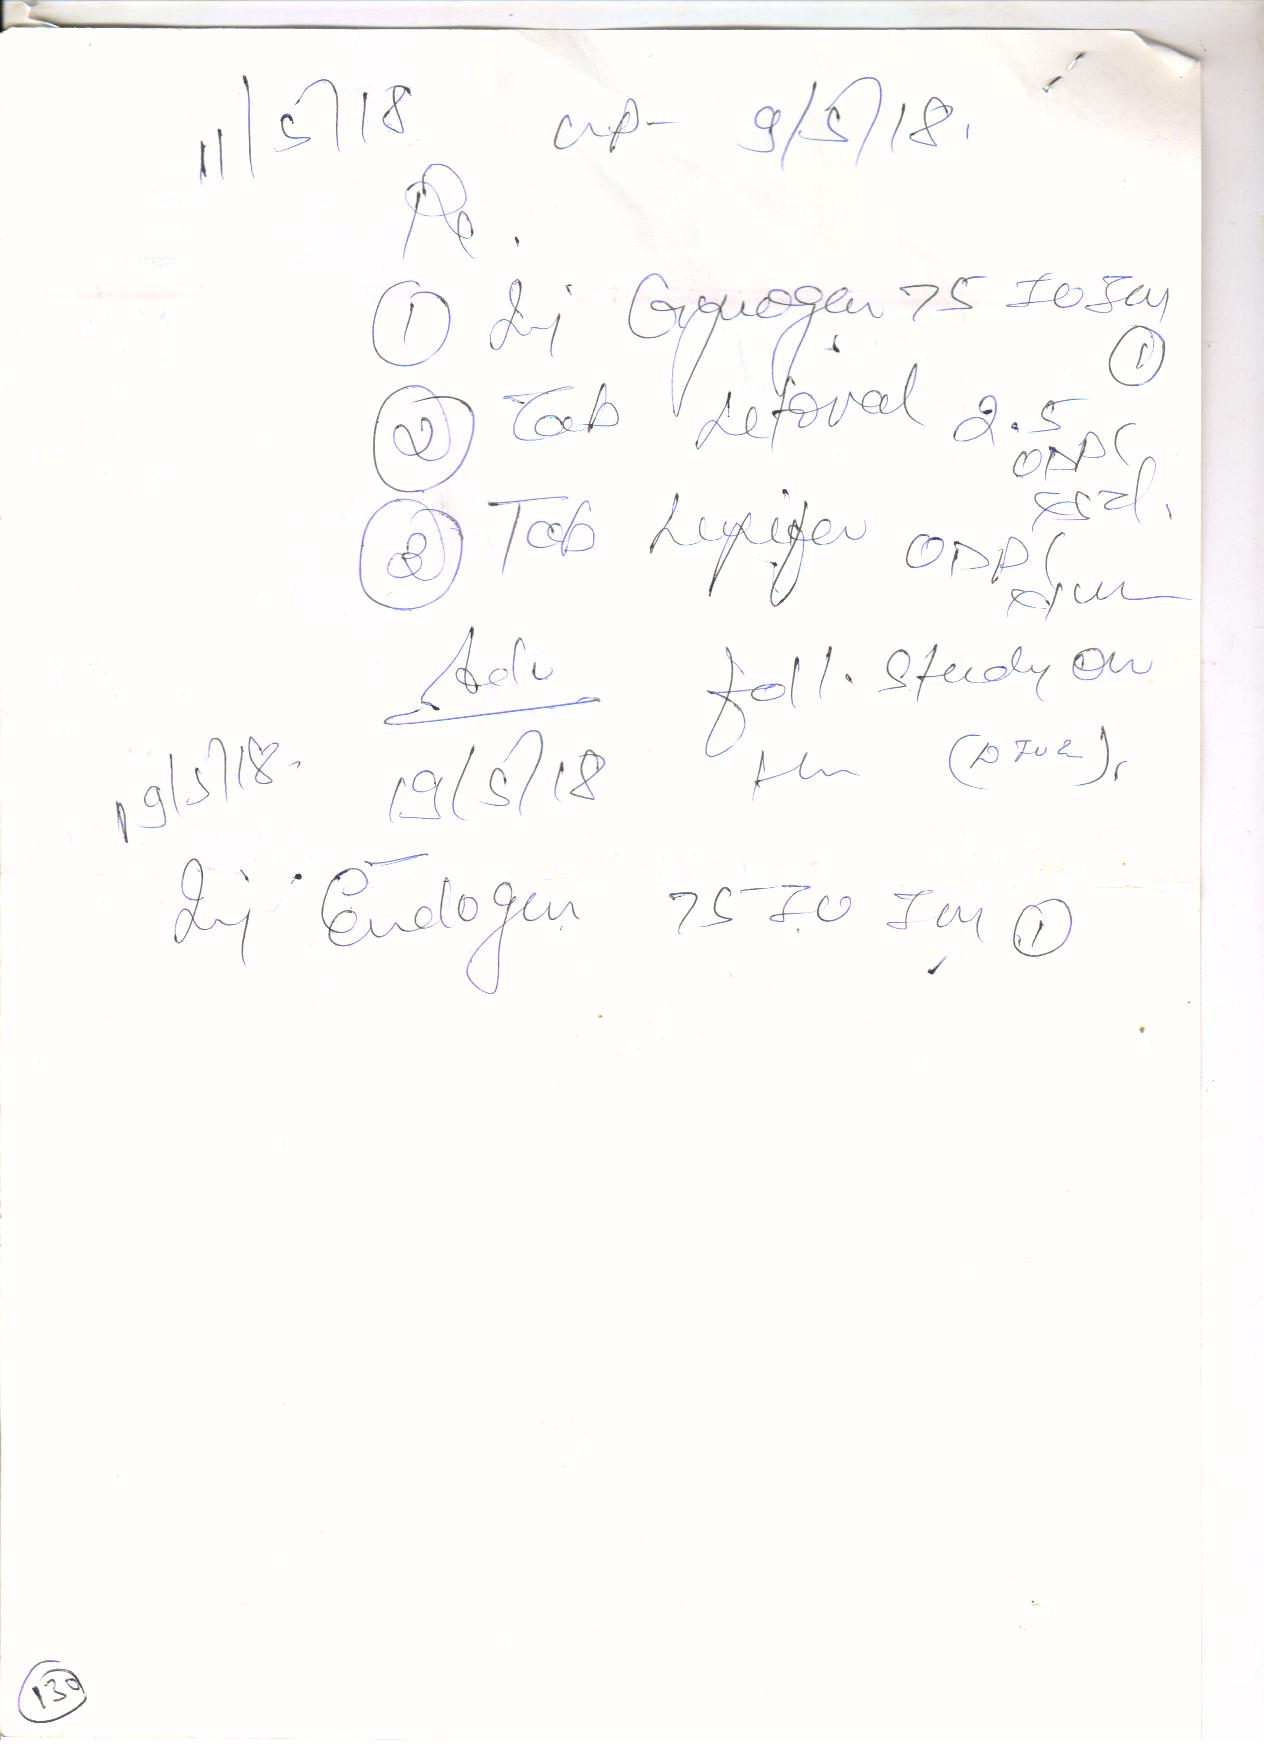 11/5/18 LMP- 9/5/18.
Rx.
① Inj Gynogen 75 IU IM ①
② Tab Letoval 2.5 ODPC x 5d.
③ Tab ODPC
Adv foll. study on
19/5/18 (DIVE).
19/5/18.
Inj Endogen 75 IU IM ①
130